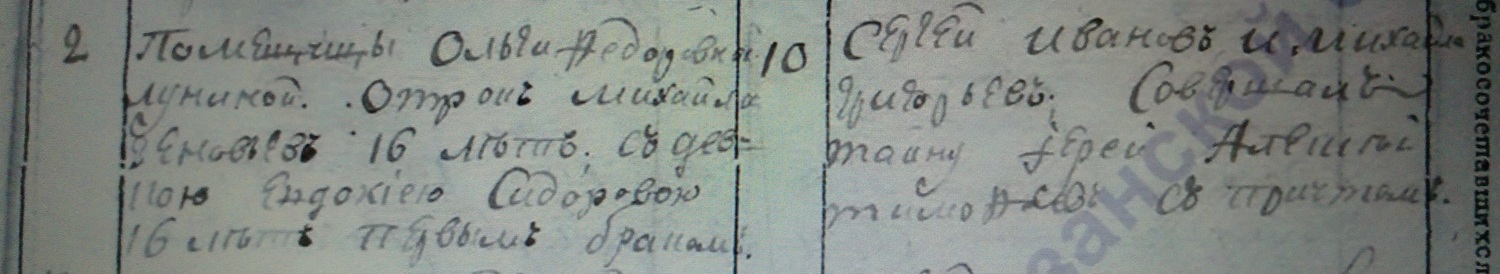 2 Помещицы Ольги Федоровны
Луниной. Отрокъ Михайла
Зеновьевъ 16 лѣтъ. съ дев=
кою Евдокіею Сидоровою
16 лѣтъ первымъ бракомъ.
10 Сергей Ивановъ и Михайла
Григорьевъ. Совершалъ
тайну Іерей Алексий
Тимофеевъ съ причтомъ.
бракосочетавшихся
рязанской